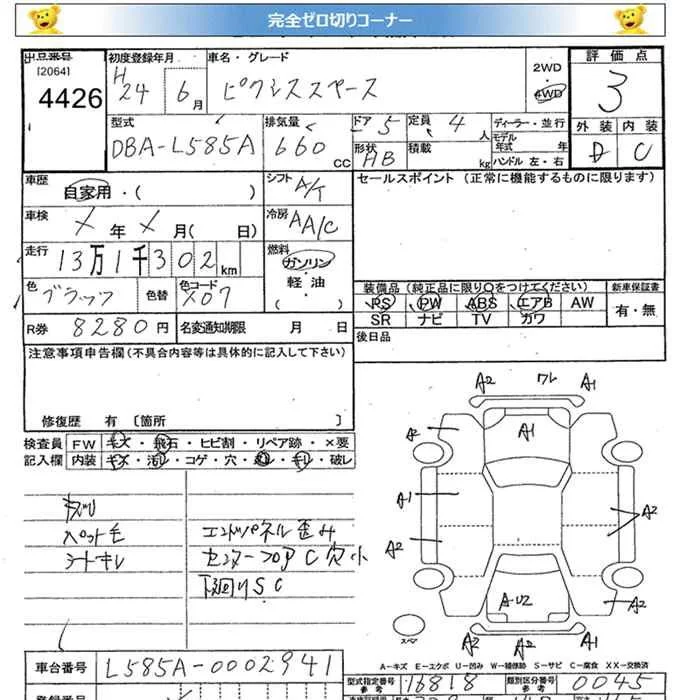 完全ゼロ切りコーナー
出品番号 初度登録年月 車名・グレード 2WD 評価点
[2064] H 24 6月 ピクシススペース 4WD 3
4426
型式 排気量 ドア 5 定員 4人 ディーラー・並行 外装 内装
DBA-L585A 660cc 形状 AB 積載 kg モデル年式 年 D C
ハンドル 左・右
車歴 自家用・( ) シフト A/T セールスポイント (正常に機能するものに限ります)
車検 メ年メ月( 日) 冷房 AA/C
走行 13万1千302km 燃料 ガソリン・軽油( )
色 ブラック 色替 色コード X07 装備品 (純正品に限り○をつけてください) 新車保証書
PS PW ABS エアB AW 有・無
SR ナビ TV カワ
R券 8280円 名変通知期限 月 日 後日品
注意事項申告欄 (不具合内容等は具体的に記入して下さい)
修復歴 有 〔箇所 〕
検査員 FW キズ・飛石・ヒビ割・リペア跡・×要
記入欄 内装 キズ・汚レ・コゲ・穴・・キレ・破レ
ペット毛 エンドパネル歪み
シートキレ センターフロアC穴小
下廻りSC
A2 ワレ A1
A2 A1
A1 A2
A2
A-U2 A2
スペア A2 A2
A-キズ E-エクボ U-凹み W-補修跡 S-サビ C-腐食 XX-交換済
車台番号 L585A-0002941
型式指定番号 参考 16818 類別区分番号 参考 0045